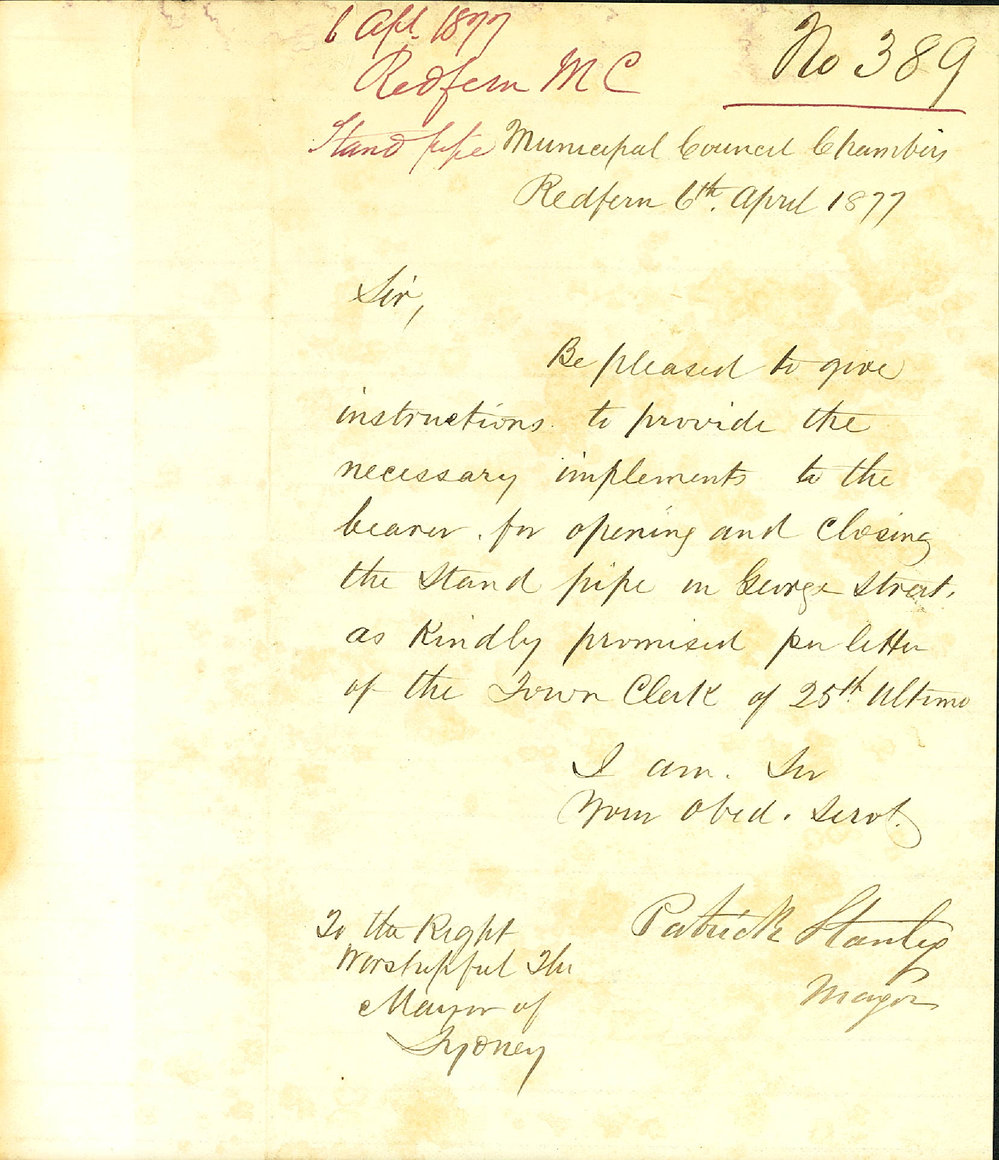 6 Apl. 1877
Redfern M C
No 389
Stand pipe
Municipal Council Chambers
Redfern 6th. April 1877
Sir,
Be pleased to give
instructions to provide the
necessary implements to the
bearer. for opening and closing
the Stand pipe in George Street,
as Kindly promised per letter
of the Town Clerk of 25th Ultimo
I am. Sir
Your Obed. Servt.
Patrick Stanley
Mayor
To the Right
Worshipful The
Mayor of
Sydney